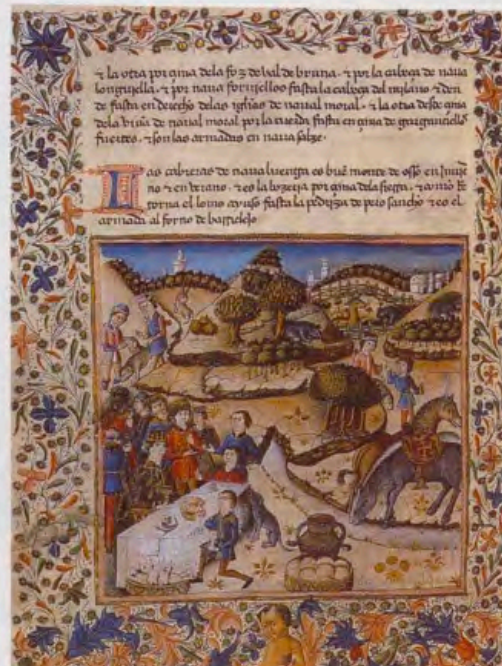 ⁊ la otra por çima dela foz de val de bruna · ⁊ por la cabeça de naua
longuiella · ⁊ por naua forniellos fasta la cabeça del milano ⁊ den
de fasta en derecho delas iglias de naual moral · ⁊ la otra desde çima
dela de naual moral por la fasta en çima de
fuertes · ⁊ son las armadas en naua salze ·
Las cabreras de naua luenga es buē monte de osso en
no ⁊ en verano · ⁊ es la bozeria por çima dela sierra · ⁊ como se
torna el lomo ayuso fasta la pedriza de pero sancho ⁊ es el
armada al forno de